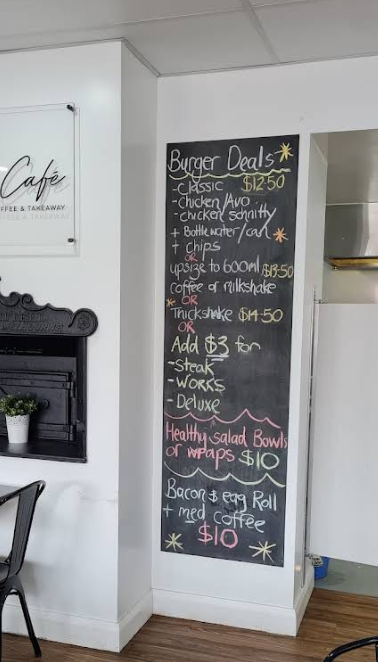 Café
FFEE & TAKEAWAY
Burger Deals
- Classic $12.50
- Chicken/Avo
- Chicken schnitty
+ Bottle water/can
+ chips
OR
upsize to 600ml $13.50
coffee or milkshake
OR
Thickshake $14.50
OR
Add $3 for
- Steak
- WORKS
- Deluxe
Healthy salad Bowls
or wraps $10
Bacon & egg Roll
+ med coffee
$10